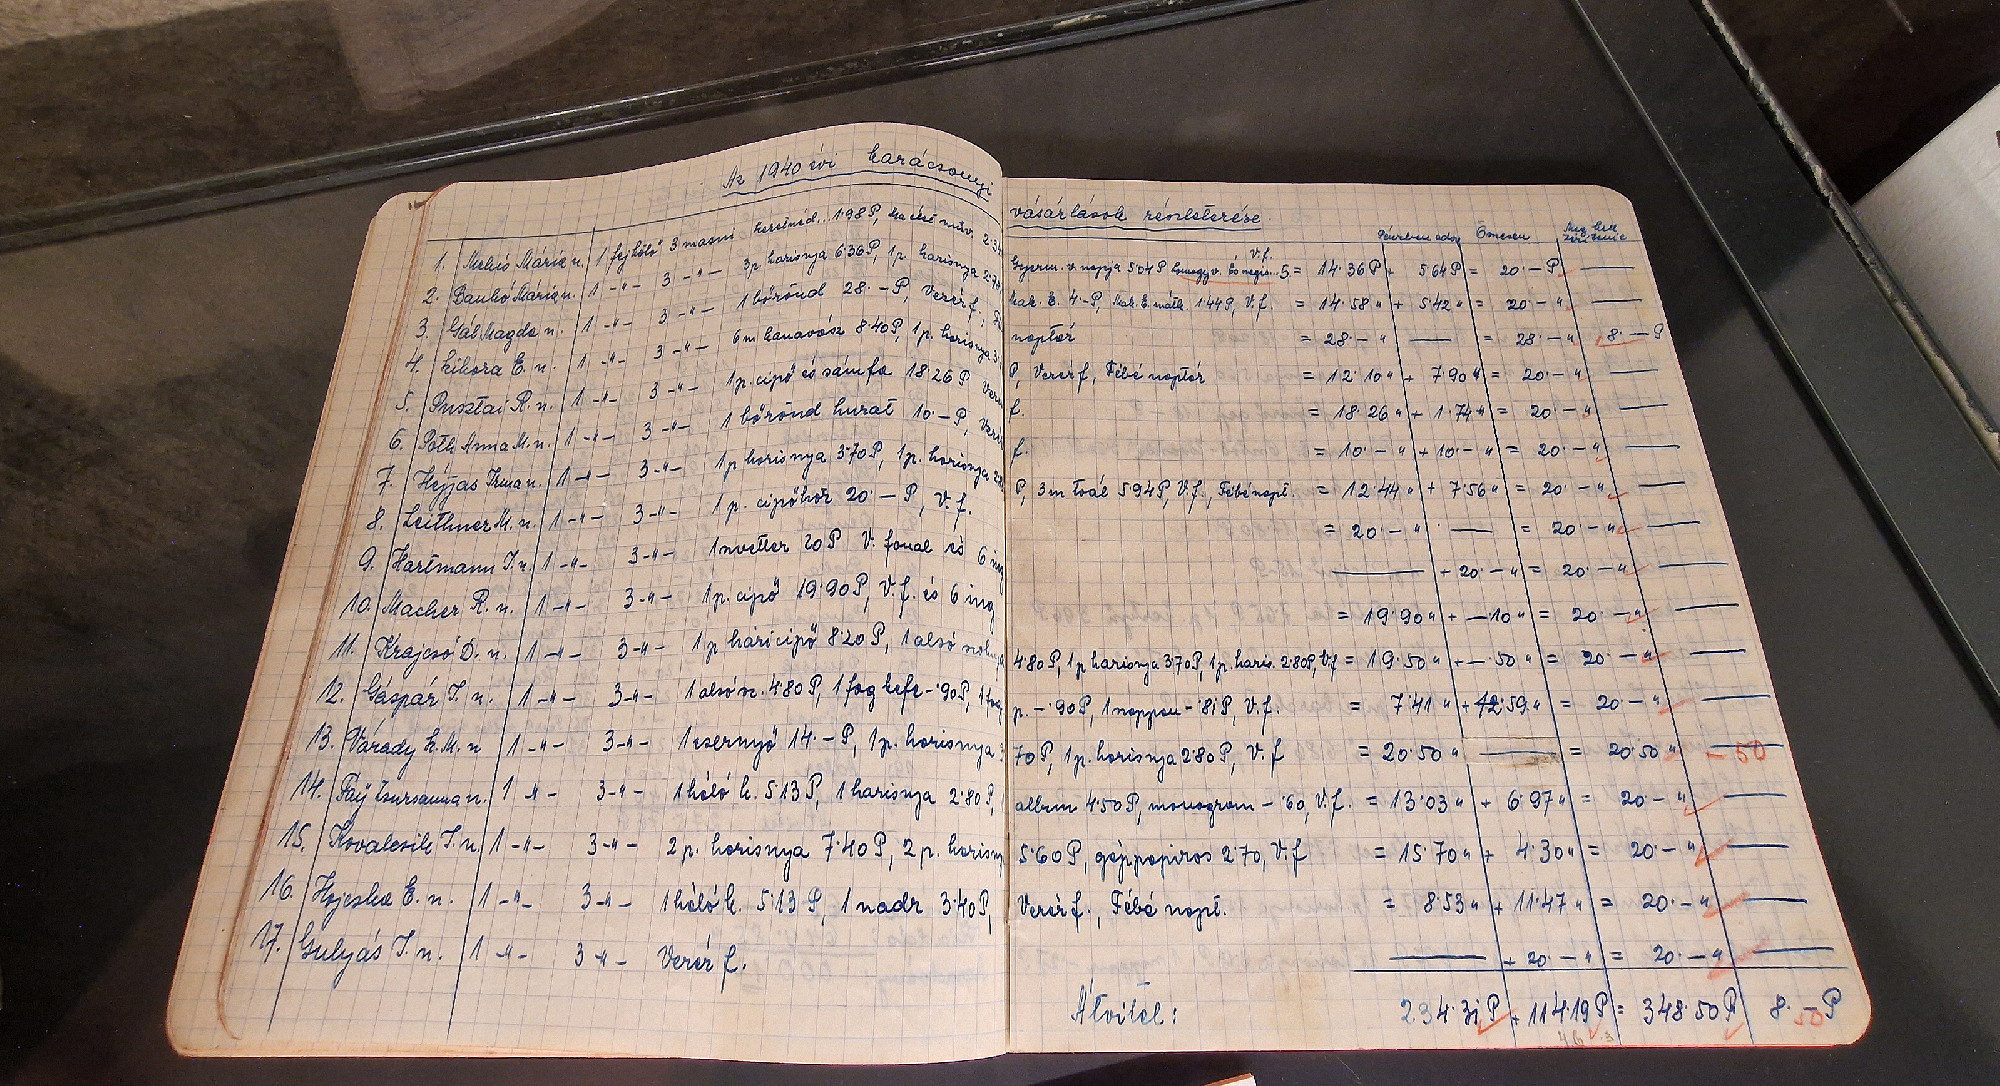 Az 1940 évi karácsonyi vásárlások részletezése
Pénzben adva Összesen
1. Melkó Mária n. 1 fejkötő 3 masni keretned. 1.98 P, 2.34 Gyerm. v. napja 5.04 P V.f. = 14.36 P + 5.64 P = 20.- P
2. Bankó Mária n. 1 -"- 3 -"- 3 p harisnya 6.36 P, 1 p. harisnya 2.78 4.-P, 1.44 P, V.f. = 14.58 " + 5.42 " = 20.- "
3. Gál Magda n. 1 -"- 3 -"- 1 bőrönd 28.-P, Vezérf., naptár = 28.- " — = 28.- " 8.- P
4. Kikora E. n. 1 -"- 3 -"- 6 m kanavász 8.40 P, 1 p. harisnya 3. P, Vezérf., Fébé naptár = 12.10 " + 7.90 " = 20.- " —
5. Pusztai R. n. 1 -"- 3 -"- 1 p. cipő és sámfa 18.26 P f. = 18.26 " + 1.74 " = 20.- " —
6. Póth Anna M. n. 1 -"- 3 -"- 1 bőrönd huzat 10.-P, f. = 10.- " + 10.- " = 20.- " —
7. Héjjas Irma n. 1 -"- 3 -"- 1 p harisnya 3.70 P, 1 p. harisnya 2.80 P, 3 m 5.94 P, V.f., Fébé napt. = 12.44 " + 7.56 " = 20.- " —
8. Leithner M. n. 1 -"- 3 -"- 1 p. cipőkor 20.- P, V.f. = 20.- " — = 20.- " —
9. Hartmann I. n. 1 -"- 3 -"- 1 svetter 20 P V. fonal és 6 ing — + 20.- " = 20.- " —
10. Macher R. n. 1 -"- 3 -"- 1 p. cipő 19.90 P, V.f. és 6 ing = 19.90 " + -.10 " = 20.- " —
11. Krajcsó D. n. 1 -"- 3 -"- 1 p házicipő 8.20 P, 1 alsó szoknya 4.80 P, 1 p harisnya 3.70 P, 1 p. haris. 2.80 P, V.f = 19.50 " + -.50 " = 20.- " —
12. Gáspár I. n. 1 -"- 3 -"- 1 alsó sz. 4.80 P, 1 fog kefe -.90 P, 1 fog p. -.90 P, 1 szappan -.81 P, V.f. = 7.41 " + 12.59 " = 20.- " —
13. Várady K. M. n 1 -"- 3 -"- 1 esernyő 14.- P, 1 p. harisnya 3.70 P, 1 p. harisnya 2.80 P, V.f = 20.50 " — = 20.50 " -.50
14. Fáy Zsuzsanna n. 1 -"- 3 -"- 1 háló k. 5.13 P, 1 harisnya 2.80 P, album 4.50 P, monogram -.60, V.f. = 13.03 " + 6.97 " = 20.- " —
15. Kovalcsik I. n. 1 -"- 3 -"- 2 p. harisnya 7.40 P, 2 p. harisnya 5.60 P, géppapiros 2.70, V.f = 15.70 " + 4.30 " = 20.- " —
16. Hojcska E. n. 1 -"- 3 -"- 1 háló k. 5.13 P, 1 nadr 3.40 P, Vezérf., Fébé napt. = 8.53 " + 11.47 " = 20.- " —
17. Gulyás I. n. 1 -"- 3 -"- Vezérf. — + 20.- " = 20.- " —
Átvitel: 234.31 P + 114.19 P = 348.50 P 8.50 P